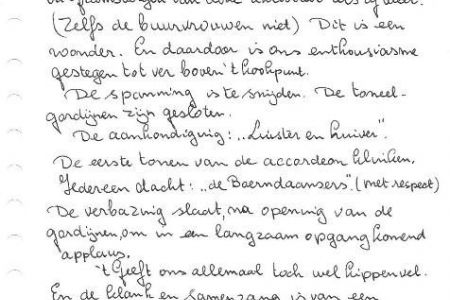 (Zelfs de buurvrouwen niet) Dit is een
wonder. En daardoor is ons enthousiasme
gestegen tot ver boven 't kookpunt.
De spanning is te snijden. De toneel-
gordijnen zijn gesloten.
De aankondiging: „Luister en huiver".
De eerste tonen van de accordeon klinken.
Iedereen dacht: „de Boerndaansers". (met respect)
De verbazing slaat, na opening van de
gordijnen, om in een langzaam opgang komend
applaus.
't Geeft ons allemaal toch wel kippenvel.
En de klank en samenzang is van een